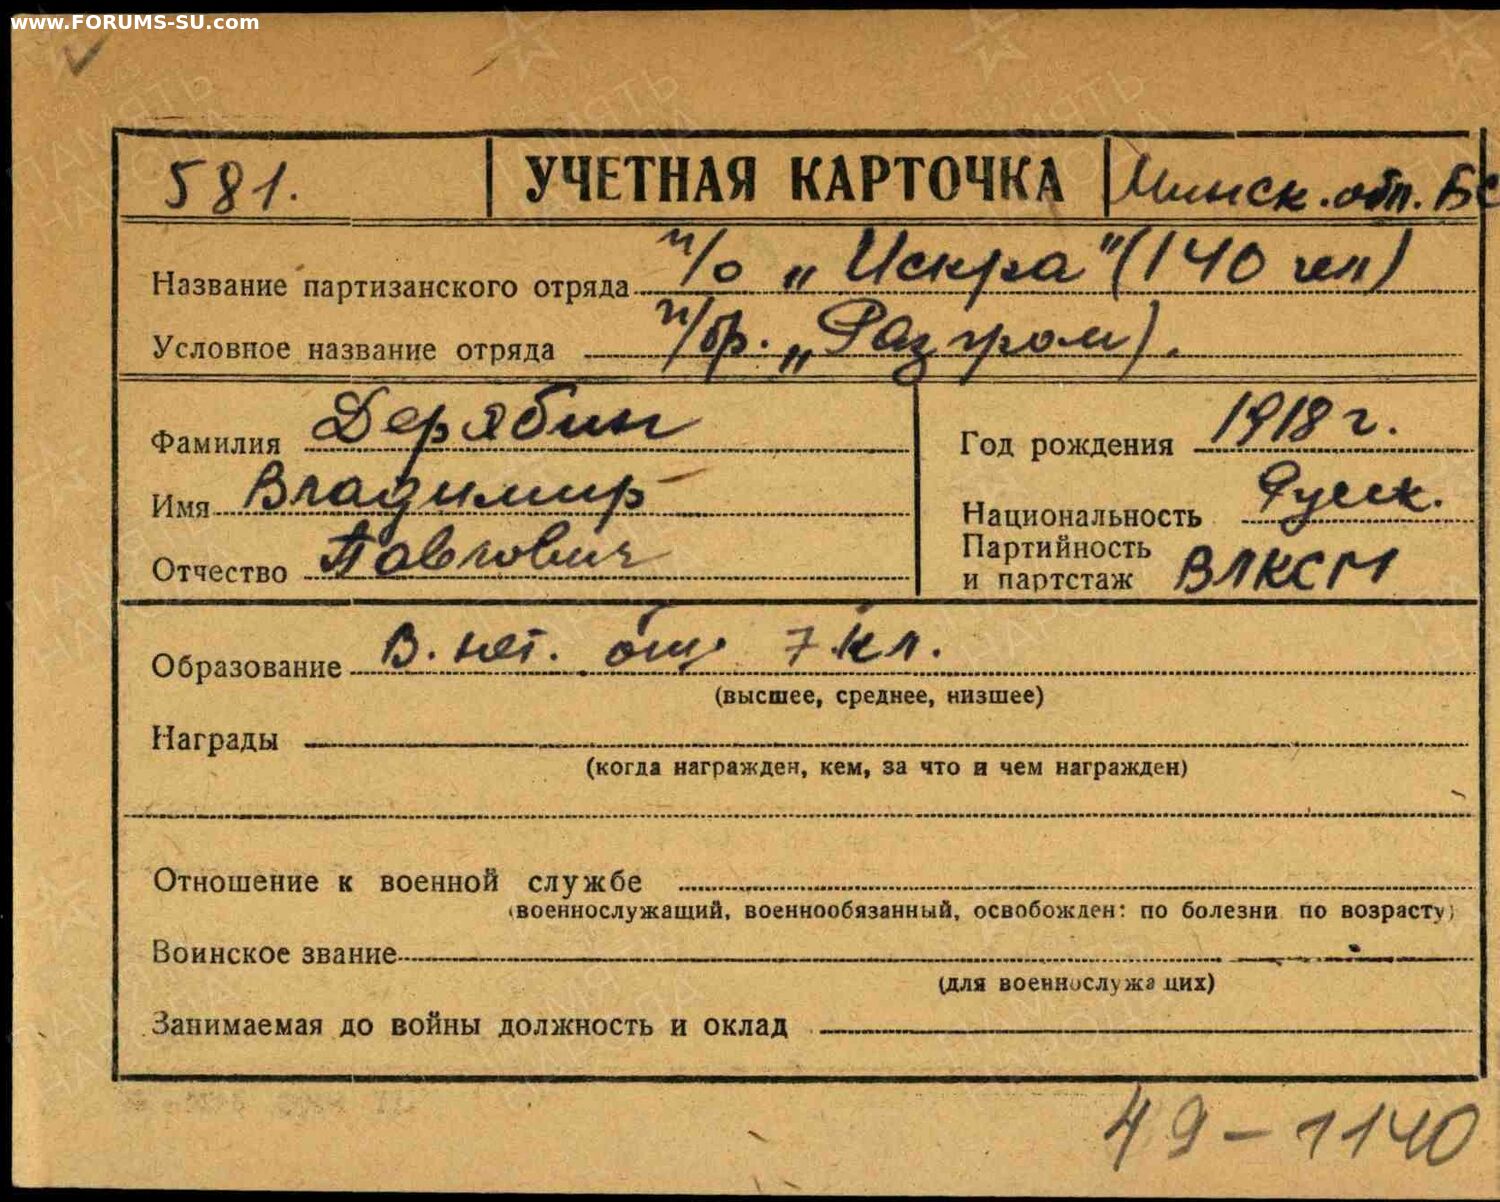 www.FORUMS-SU.com
581. УЧЕТНАЯ КАРТОЧКА Минск. обл. БС
Название партизанского отряда п/о „Искра" (140 чел)
Условное название отряда п/бр. „Разгром).
Фамилия Дерябин
Год рождения 1918 г.
Имя Владимир
Национальность Русск.
Отчество Павлович
Партийность
и партстаж ВЛКСМ
Образование В. нет. общ. 7 кл.
(высшее, среднее, низшее)
Награды
(когда награжден, кем, за что и чем награжден)
Отношение к военной службе
(военнослужащий, военнообязанный, освобожден: по болезни по возрасту)
Воинское звание
(для военнослужащих)
Занимаемая до войны должность и оклад
49-1140
ПАМЯТЬ
НАРОДА